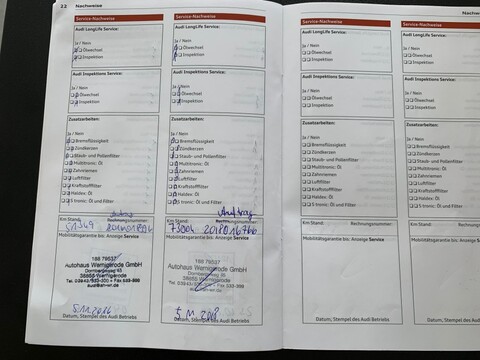 22 Nachweise
Service-Nachweise
Audi LongLife Service:
Ja / Nein
Ölwechsel
Inspektion
Audi Inspektions Service:
Ja / Nein
Ölwechsel
Inspektion
Zusatzarbeiten:
Ja / Nein
Bremsflüssigkeit
Zündkerzen
Staub- und Pollenfilter
Multitronic: Öl
Zahnriemen
Luftfilter
Kraftstofffilter
Haldex: Öl
S tronic: Öl und Filter
Km Stand: Rechnungsnummer:
51349
Mobilitätsgarantie bis: Anzeige Service
Autohaus Wernigerode GmbH
Dornbergsweg 45
38855 Wernigerode
Datum, Stempel des Audi Betriebs
Service-Nachweise
Audi LongLife Service:
Ja / Nein
Ölwechsel
Inspektion
Audi Inspektions Service:
Ja / Nein
Ölwechsel
Inspektion
Zusatzarbeiten:
Ja / Nein
Bremsflüssigkeit
Zündkerzen
Staub- und Pollenfilter
Multitronic: Öl
Zahnriemen
Luftfilter
Kraftstofffilter
Haldex: Öl
S tronic: Öl und Filter
Km Stand: Rechnungsnummer:
73004
Mobilitätsgarantie bis: Anzeige Service
Autohaus Wernigerode GmbH
Dornbergsweg 45
38855 Wernigerode
Datum, Stempel des Audi Betriebs
Service-Nachweise
Audi LongLife Service:
Ja / Nein
Ölwechsel
Inspektion
Audi Inspektions Service:
Ja / Nein
Ölwechsel
Inspektion
Zusatzarbeiten:
Ja / Nein
Bremsflüssigkeit
Zündkerzen
Staub- und Pollenfilter
Multitronic: Öl
Zahnriemen
Luftfilter
Kraftstofffilter
Haldex: Öl
S tronic: Öl und Filter
Km Stand: Rechnungsnummer:
Mobilitätsgarantie bis: Anzeige Service
Datum, Stempel des Audi Betriebs
Service-Nachweise
Audi LongLife Service:
Ja / Nein
Ölwechsel
Inspektion
Audi Inspektions Service:
Ja / Nein
Ölwechsel
Inspektion
Zusatzarbeiten:
Ja / Nein
Bremsflüssigkeit
Zündkerzen
Multitronic: Öl
Zahnriemen
Luftfilter
Haldex: Öl
Km Stand:
Mobilitätsgarantie bis:
Datum, Stempel des